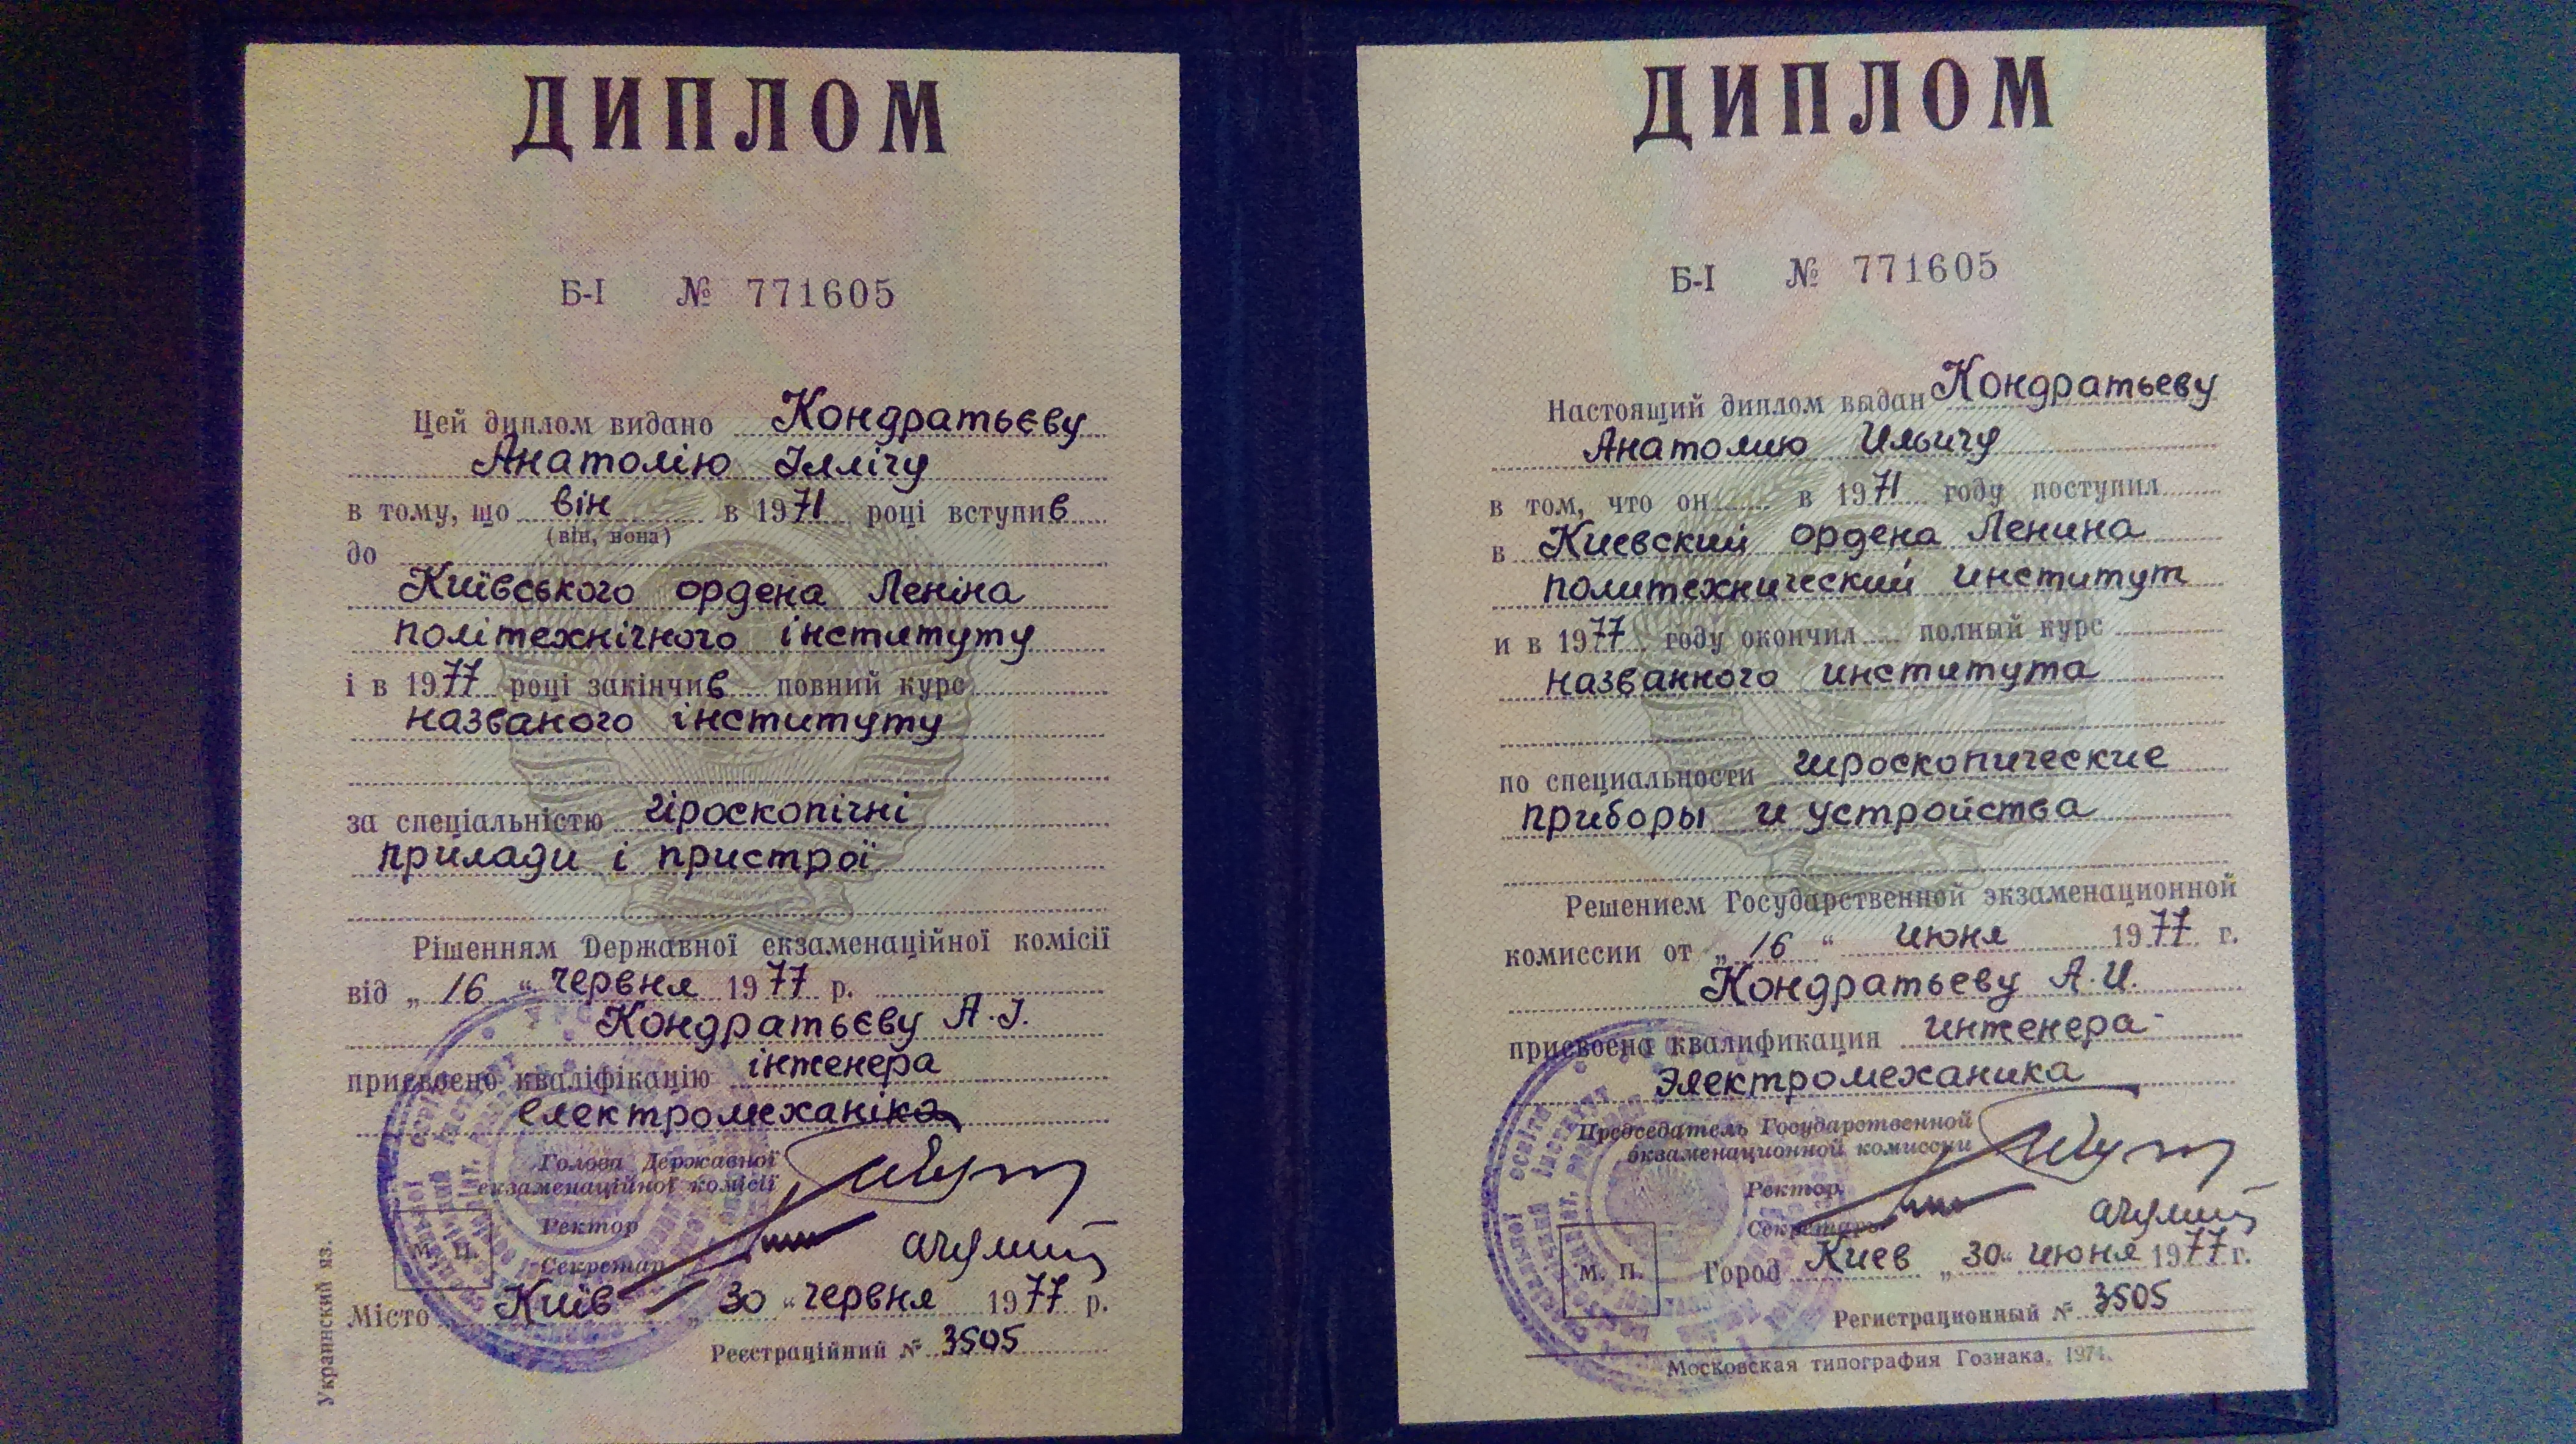 ДИПЛОМ
Б-І № 771605
Цей диплом видано Кондратьєву
Анатолію Іллічу
в тому, що він в 1971 році вступив
(він, вона)
до
Київського ордена Леніна
політехнічного інституту
і в 1977 році закінчив повний курс
названого інституту
за спеціальністю гіроскопічні
прилади і пристрої
Рішенням Державної екзаменаційної комісії
від „16“ червня 1977 р.
Кондратьєву А.І.
присвоєно кваліфікацію інженера
електромеханіка
Голова Державної
екзаменаційної комісії
Ректор
Секретар
М. П.
Місто Київ „30“ червня 1977 р.
Реєстраційний № 3505
Украинский яз.
ДИПЛОМ
Б-І № 771605
Настоящий диплом выдан Кондратьеву
Анатолию Ильичу
в том, что он в 1971 году поступил
в Киевский ордена Ленина
политехнический институт
и в 1977 году окончил полный курс
названного института
по специальности гироскопические
приборы и устройства
Решением Государственной экзаменационной
комиссии от „16“ июня 1977 г.
Кондратьеву А.И.
присвоена квалификация инженера-
электромеханика
Председатель Государственной
экзаменационной комиссии
Ректор
Секретарь
М. П.
Город Киев „30“ июня 1977 г.
Регистрационный № 3505
Московская типография Гознака. 1974.